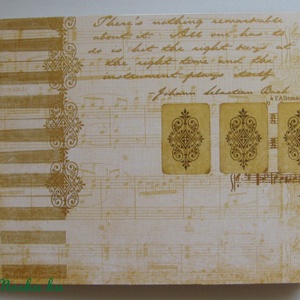 There's nothing remarkable
about it. All one has to
do is hit the right keys at
the right time and the
instrument plays itself
-Johann Sebastian Bach
à l'Ottava